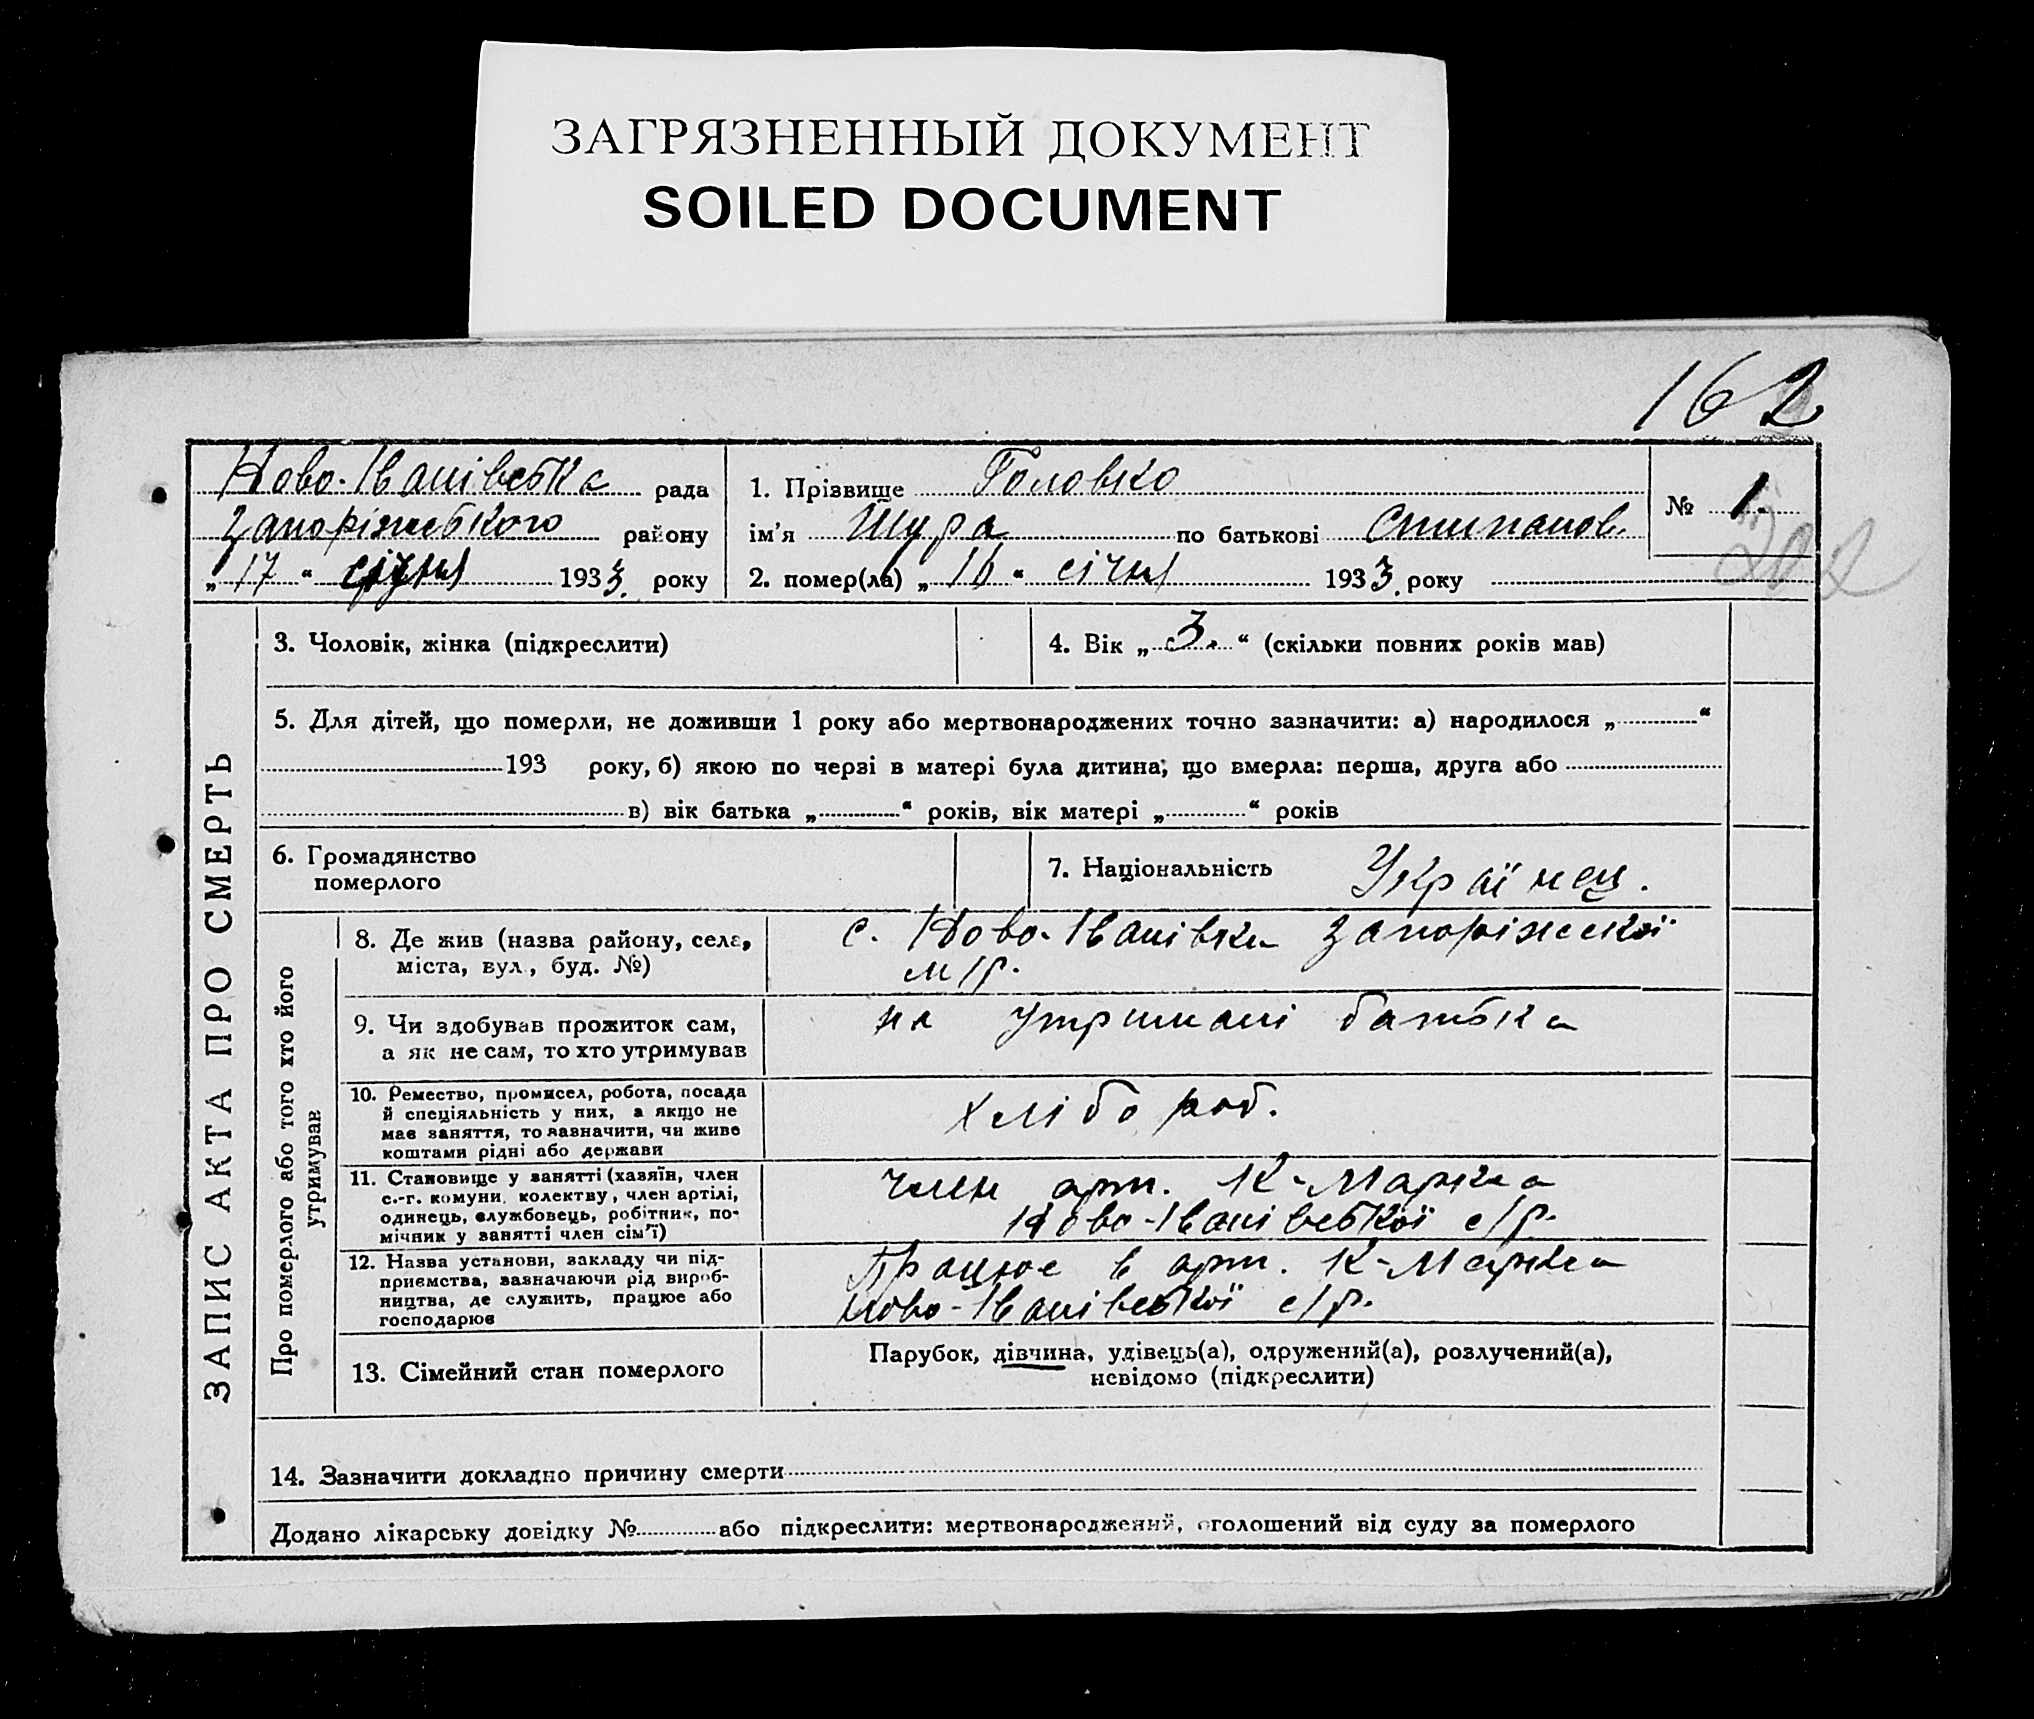 ЗАГРЯЗНЕННЫЙ ДОКУМЕНТ
SOILED DOCUMENT
162
Ново-Іванівська рада
Запоріжського району
„17“ січня 1933. року
1. Прізвище Головко
ім’я Шура по батькові Стипанов.
2. помер(ла) „16“ січня 1933. року
№ 1.
202
ЗАПИС АКТА ПРО СМЕРТЬ
3. Чоловік, жінка (підкреслити)
4. Вік „3.“ (скільки повних років мав)
5. Для дітей, що померли, не доживши 1 року або мертвонароджених точно зазначити: а) народилося „ “
193 року, б) якою по черзі в матері була дитина, що вмерла: перша, друга або
в) вік батька „ “ років, вік матері „ “ років
6. Громадянство
померлого
7. Національність Українец.
Про померлого або того хто його
утримував
8. Де жив (назва району, села,
міста, вул., буд. №)
с. Ново-Іванівка Запоріжської
м/р.
9. Чи здобував прожиток сам,
а як не сам, то хто утримував
на утримані батька
10. Ремество, промисел, робота, посада
й спеціяльність у них, а якщо не
має заняття, то зазначити, чи живе
коштами рідні або держави
хлібороб.
11. Становище у занятті (хазяїн, член
с.-г. комуни, колектву, член артілі,
одинець, службовець, робітник, по-
мічник у занятті член сім’ї)
член арт. К-Маркса
Ново-Іванівської с/р.
12. Назва установи, закладу чи під-
приємства, зазначаючи рід вироб-
ництва, де служить, працює або
господарює
Працює в арт. К-Маркса
Ново-Іванівської с/р.
13. Сімейний стан померлого
Парубок, дівчина, удівець(а), одружений(а), розлучений(а),
невідомо (підкреслити)
14. Зазначити докладно причину смерти
Додано лікарську довідку № або підкреслити: мертвонароджений, оголошений від суду за померлого